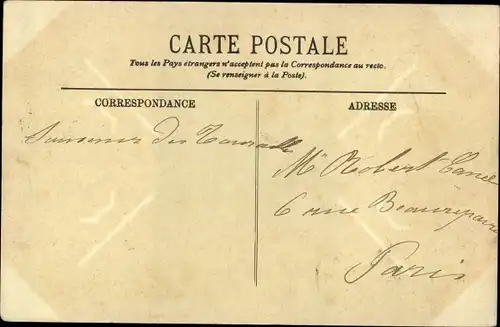 CARTE POSTALE
Tous les Pays étrangers n'acceptent pas la Correspondance au recto.
(Se renseigner à la Poste).
CORRESPONDANCE
ADRESSE
Souvenir du
Mr Robert
6 rue Beaurepaire
Paris